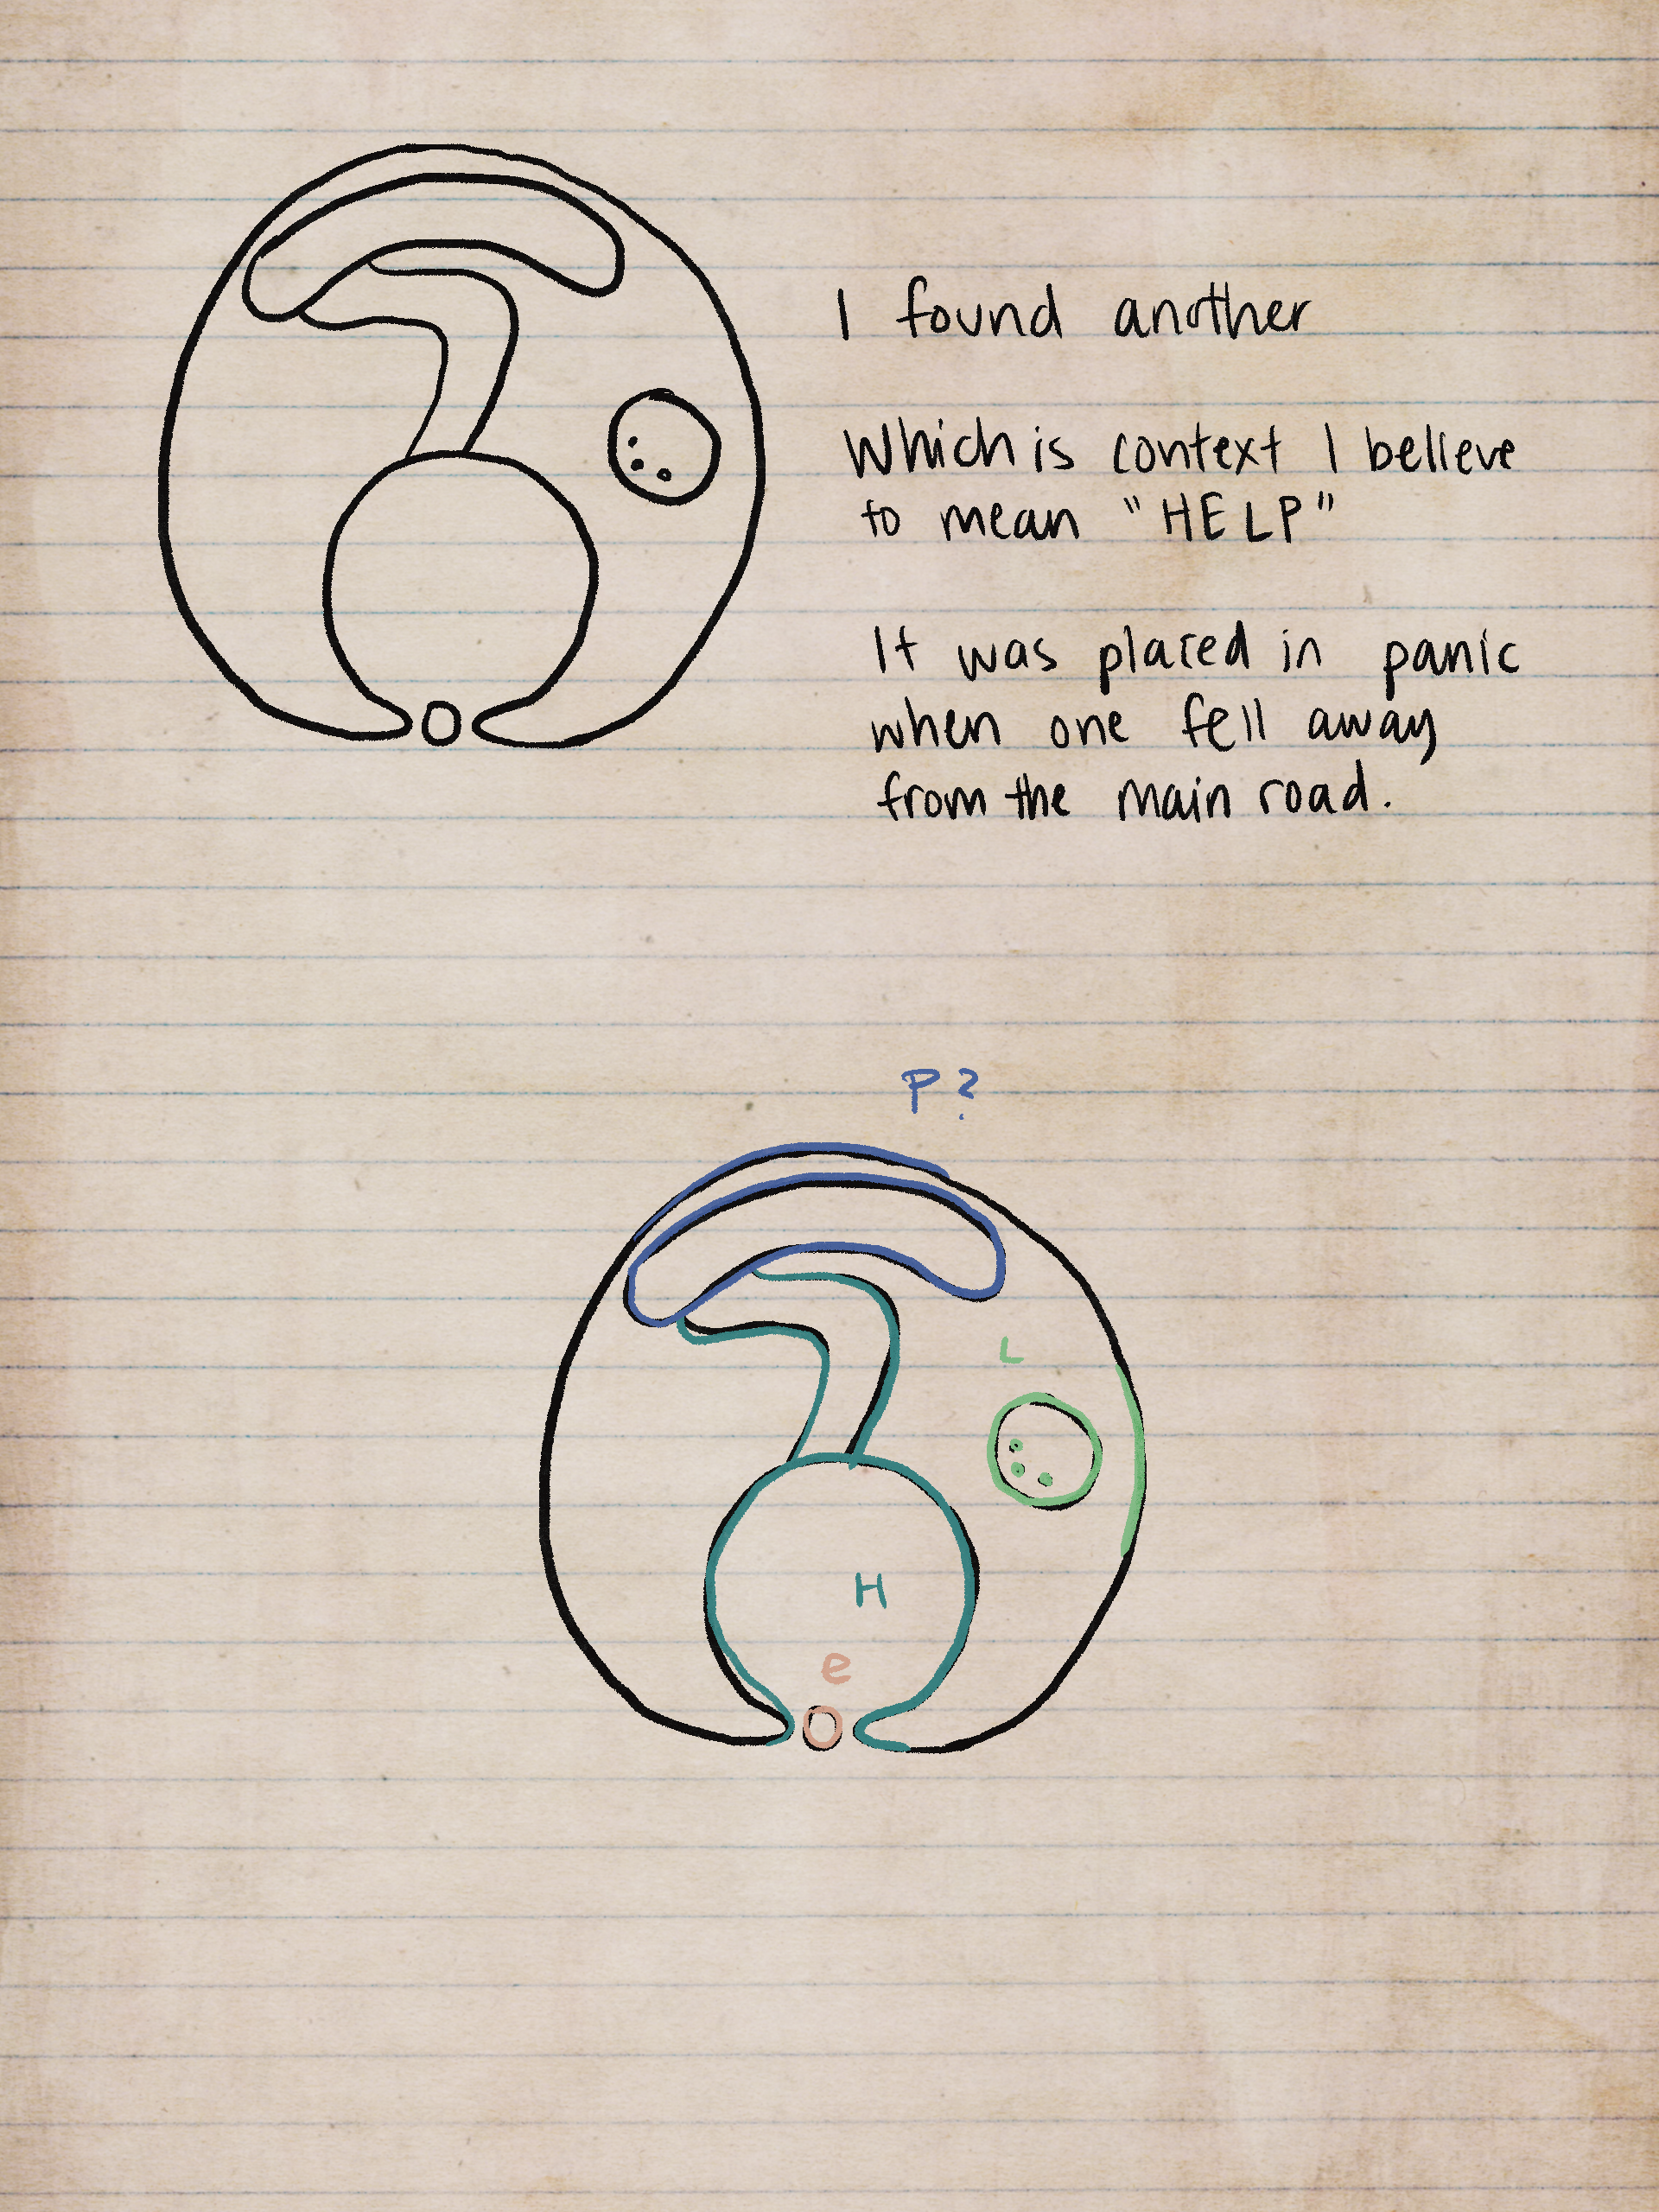 I found another
Which is context I believe
to mean "HELP"
It was placed in panic
when one fell away
from the main road.
P?
L
H
e